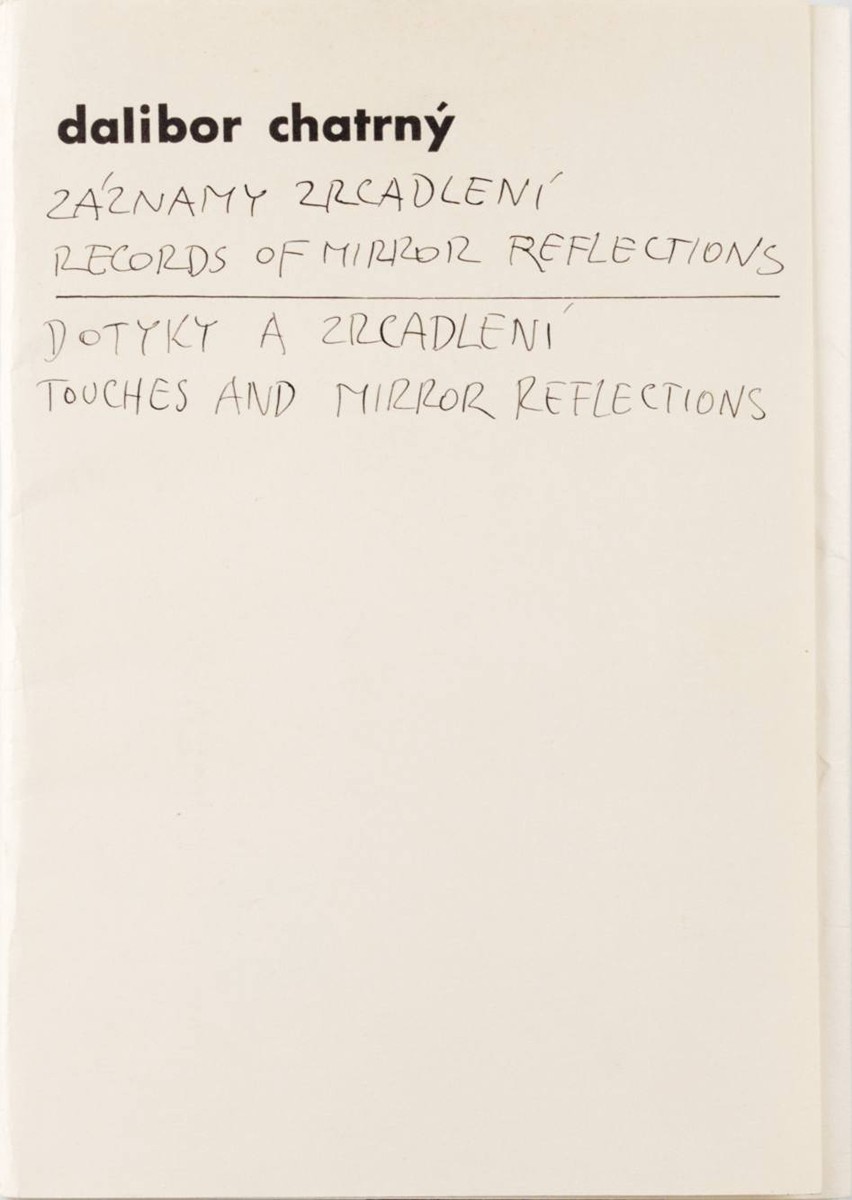 dalibor chatrný
ZÁZNAMY ZRCADLENÍ
RECORDS OF MIRROR REFLECTIONS
DOTYKY A ZRCADLENÍ
TOUCHES AND MIRROR REFLECTIONS